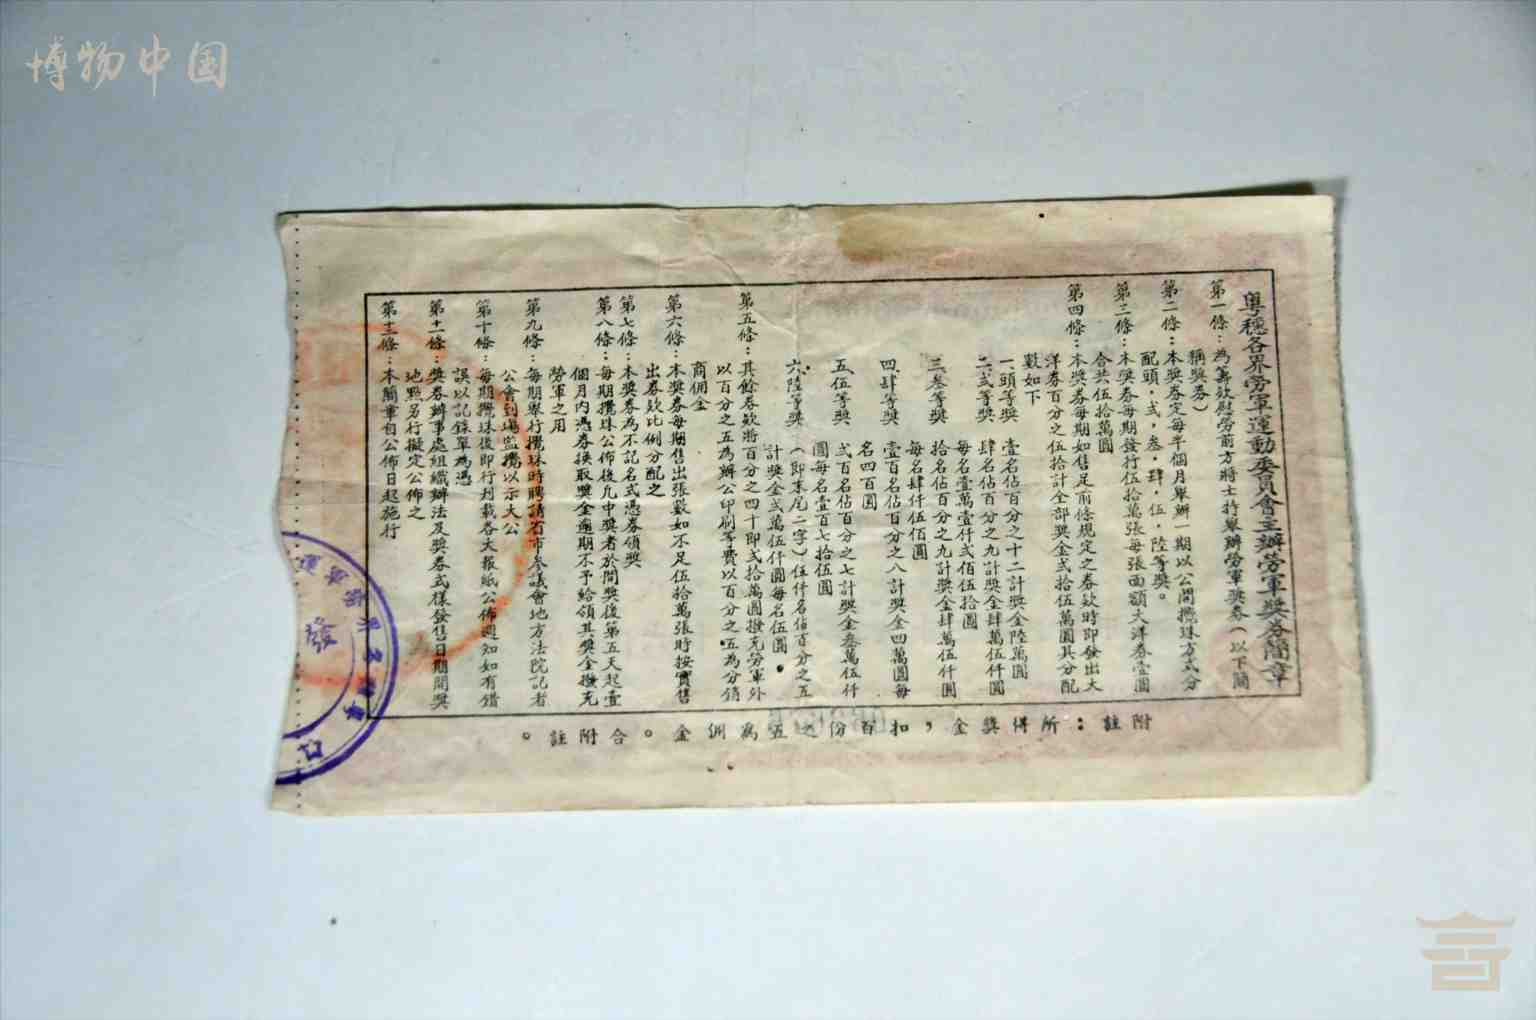 博物中国
粵穗各界勞軍運動委員會主辦勞軍獎券簡章
第一條：為籌款慰勞前方將士特舉辦勞軍獎券（以下簡
稱獎券）
第二條：本獎券定每半個月舉辦一期以公開攪珠方式分
配頭，弍，叁，肆，伍，陸等獎。
第三條：本獎券每期發行伍拾萬張每張面額大洋券壹圓
合共伍拾萬圓
第四條：本獎券每期如售足前條規定之券款時即發出大
洋券百分之伍拾計全部獎金弍拾伍萬圓其分配
數如下
一、頭等獎 壹名佔百分之十二計獎金陸萬圓
二、弍等獎 肆名佔百分之九計獎金肆萬伍仟圓
每名壹萬壹仟弍佰伍拾圓
三、叁等獎 拾名佔百分之九計獎金肆萬伍仟圓
每名肆仟伍佰圓
四、肆等獎 壹百名佔百分之八計獎金四萬圓每
名四百圓
五、伍等獎 弍百名佔百分之七計獎金叁萬伍仟
圓每名壹百七拾伍圓
六、陸等獎 （即末尾二字）伍仟名佔百分之五
計獎金弍萬伍仟圓每名伍圓。
第五條：其餘券款將百分之四十即弍拾萬圓撥充勞軍外
以百分之五為辦公印刷等費以百分之五為分銷
商佣金
第六條：本獎券每期售出張數如不足伍拾萬張時按實售
出券款比例分配之
第七條：本獎券為不記名式憑券領獎
第八條：每期攪珠公佈後凡中獎者於開獎後第五天起壹
個月內憑券換取獎金逾期不予給領其獎金撥充
勞軍之用
第九條：每期舉行攪珠時聘請省市參議會地方法院記者
公會到場監攪以示大公
第十條：每期攪珠後即行刊載各大報紙公佈週知如有錯
誤以記錄單為憑
第十一條：獎券辦事處組織辦法及獎券式樣發售日期開獎
地點另行擬定公佈之
第十二條：本簡章自公佈日起施行
附註：所得獎金，扣百份之五為佣金。合附註。
發